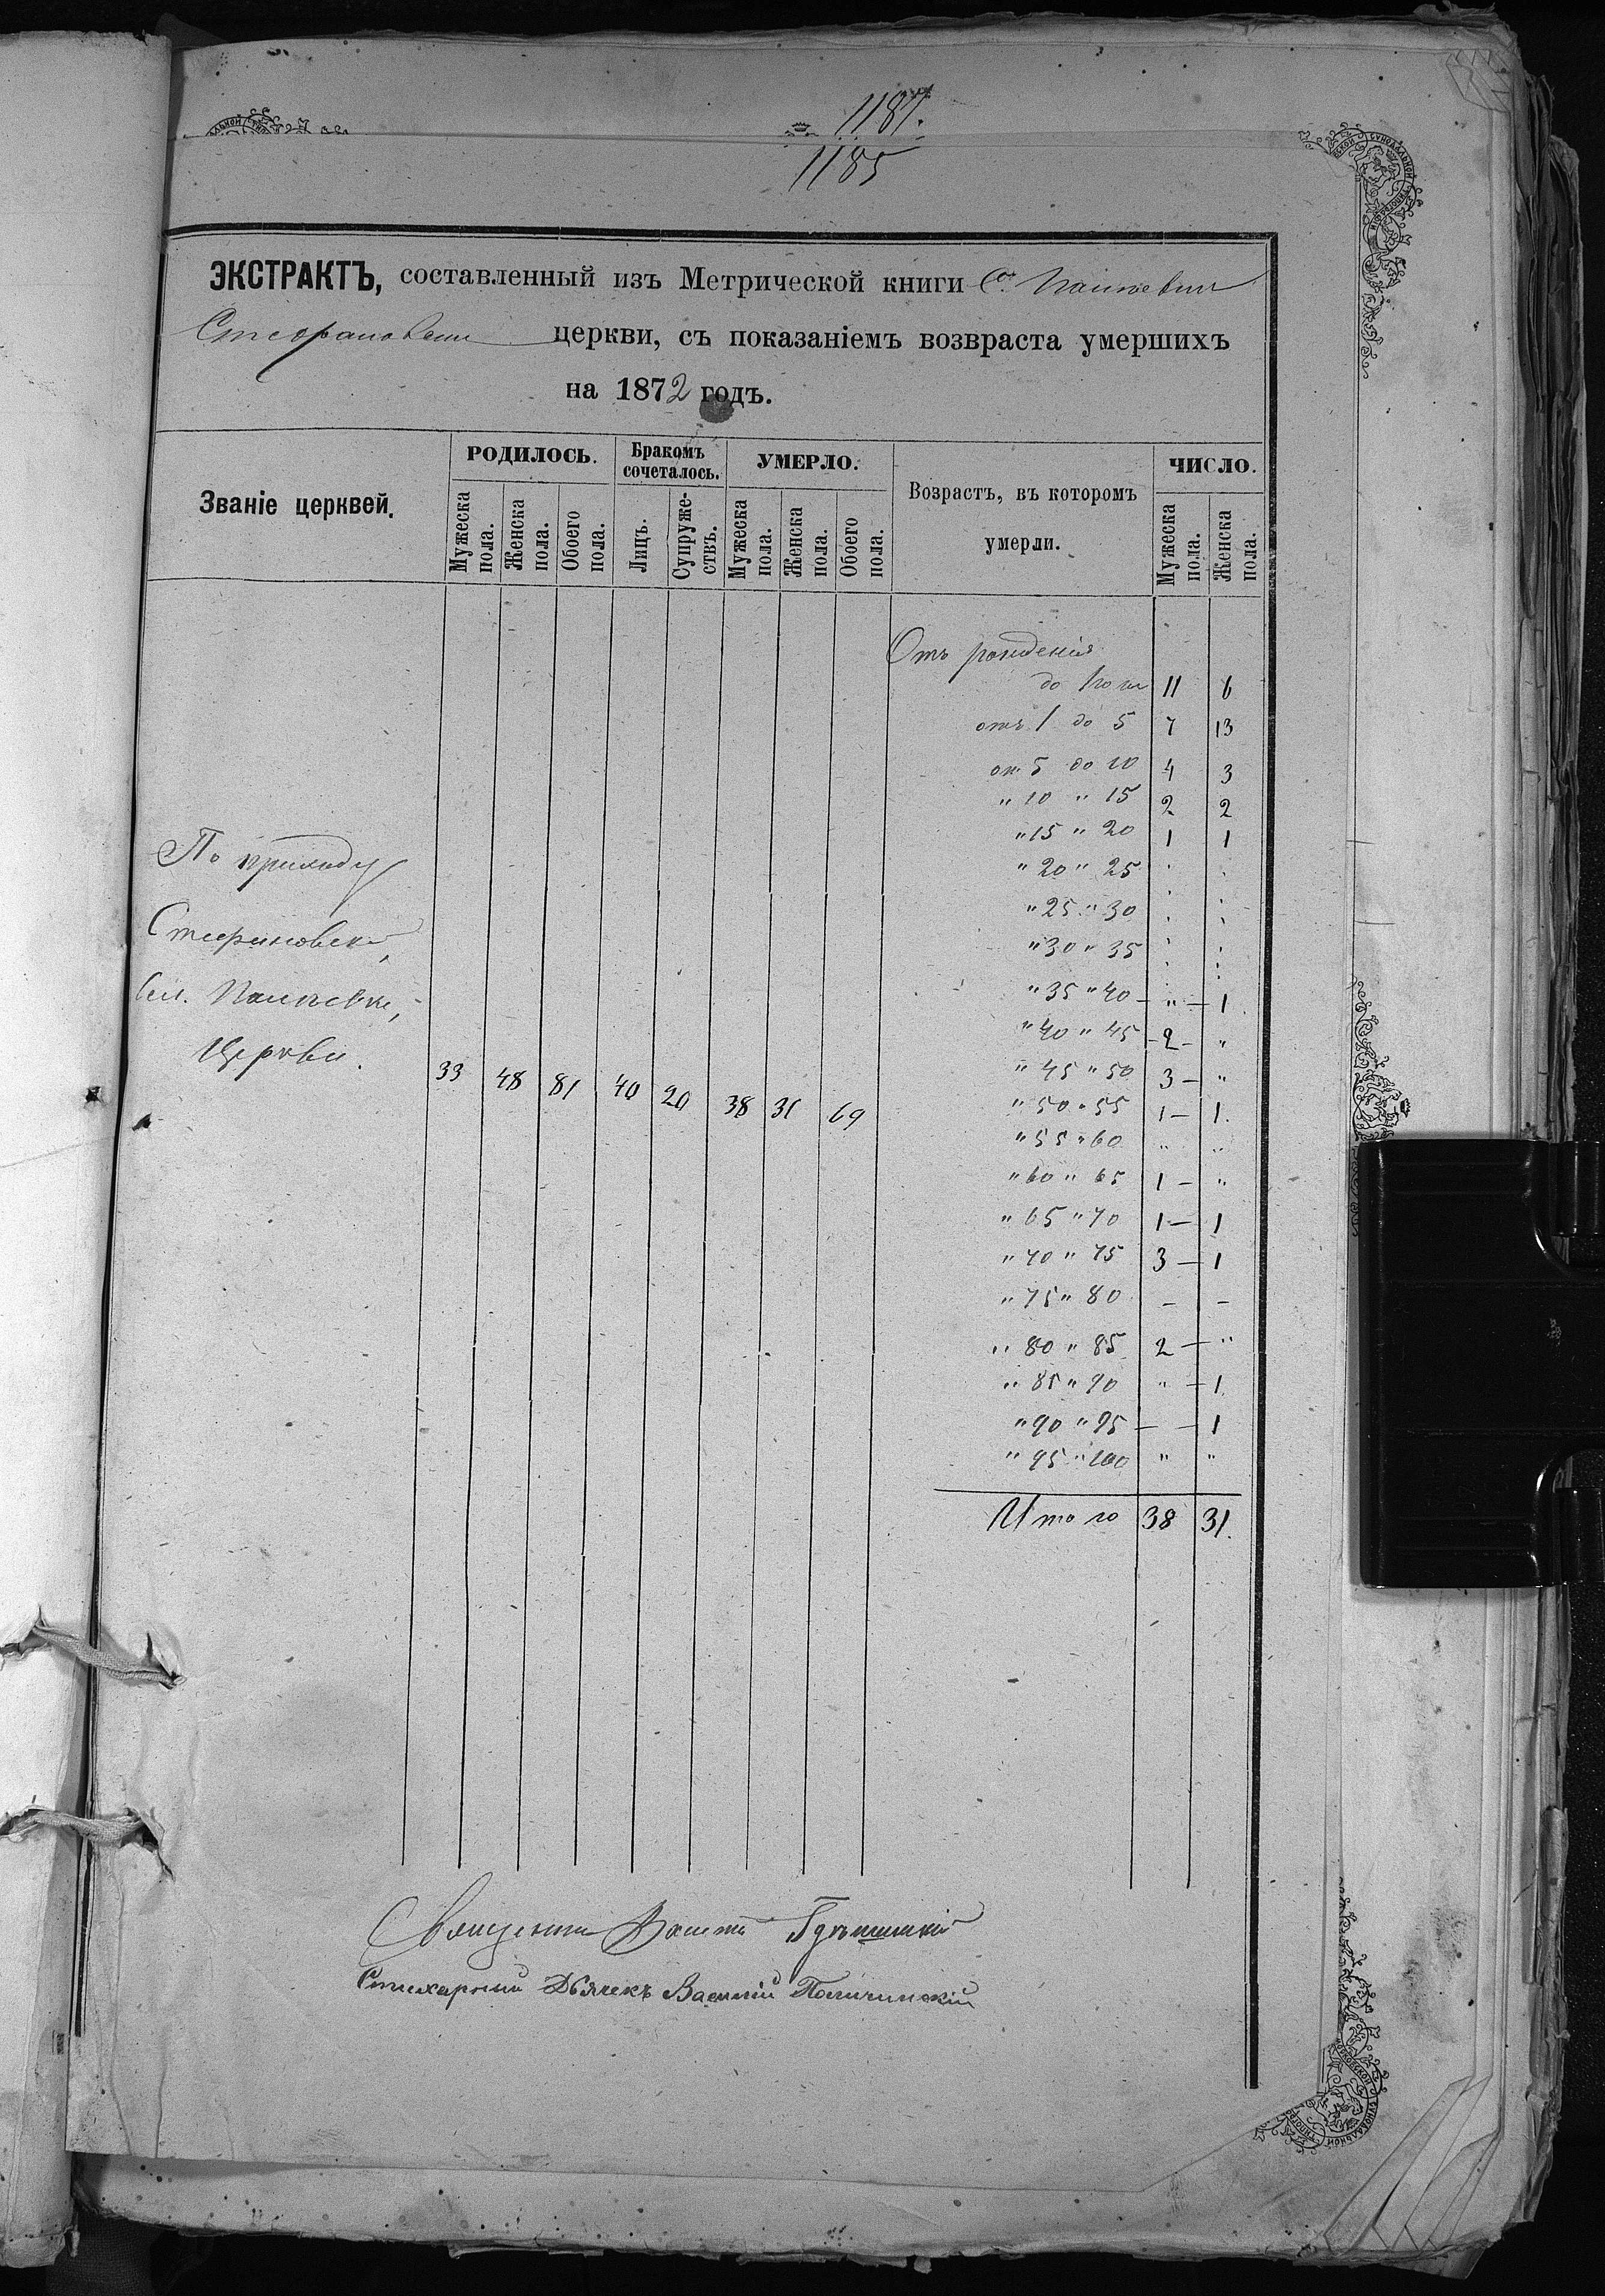 1187.
1185
ЭКСТРАКТЪ, составленный изъ Метрической книги С.
церкви, съ показаніемъ возвраста умершихъ
на 1872 годъ.
Званіе церквей.
РОДИЛОСЬ.
Бракомъ сочеталось.
УМЕРЛО.
Возрастъ, въ которомъ умерли.
ЧИСЛО.
Мужеска пола.
Женска пола.
Обоего пола.
Лицъ.
Супружествъ.
Мужеска пола.
Женска пола.
Обоего пола.
Мужеска пола.
Женска пола.
Отъ рожденія
до 1го 11 6
отъ 1 до 5 7 13
от. 5 до 10 4 3
" 10 " 15 2 2
" 15 " 20 1 1
" 20 " 25
" 25 " 30
" 30 " 35
" 35 " 40 – " – 1
" 40 " 45 – 2 – "
" 45 " 50 3 – "
" 50 " 55 1 – 1.
" 55 " 60 " "
" 60 " 65 1 – "
" 65 " 70 1 – 1
" 70 " 75 3 – 1
" 75 " 80 – –
" 80 " 85 2 – "
" 85 " 90 " – 1
" 90 " 95 – – 1
" 95 " 100 " "
Итого 38 31.
По приходу
Церкви.
33 48 81 40 20 38 31 69
Стихарный Дьячекъ Василій